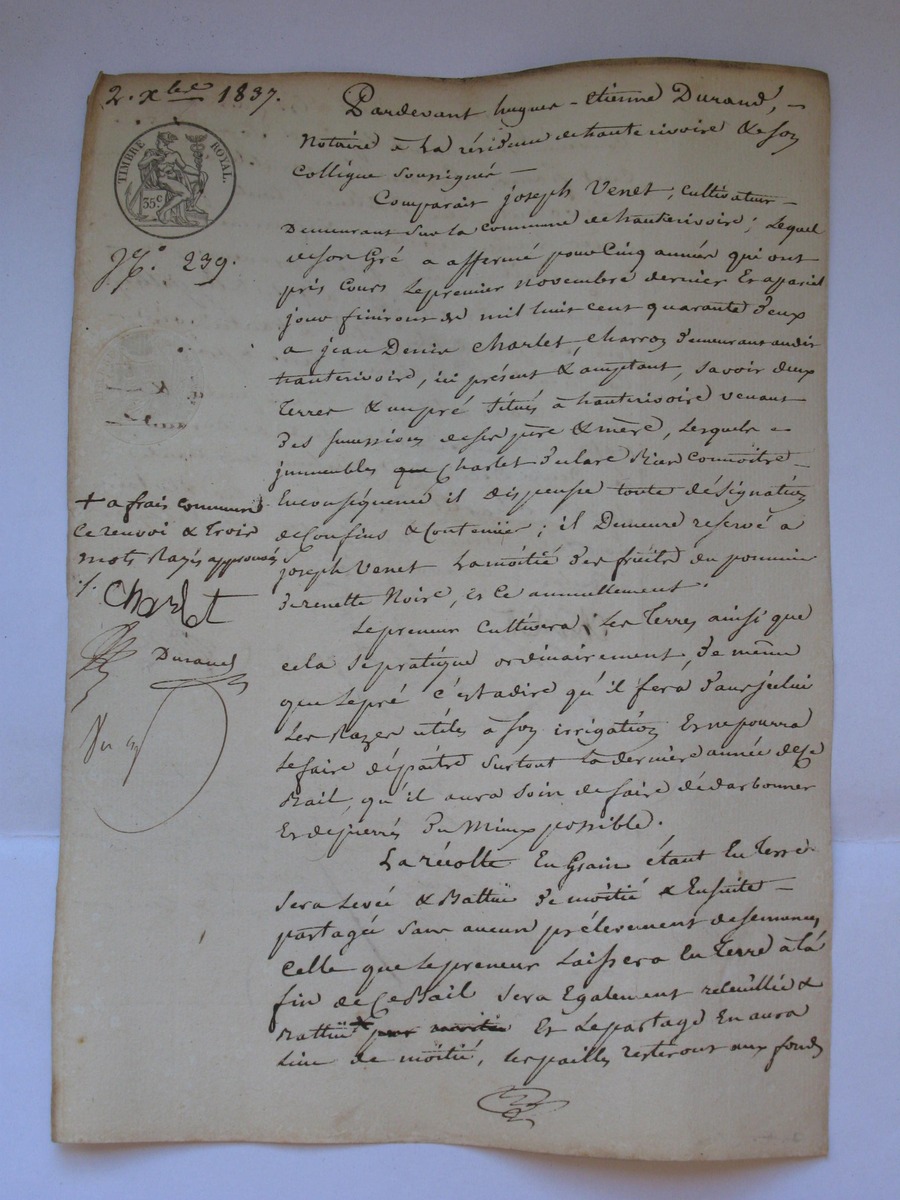 2. Xbre 1837.
TIMBRE ROYAL.
35 c
N°. 239.
+ a frais communs
ce renvoi & trois
mots Rayés approuvés
./.
Charlet
Durand
Pardevant hugues-etienne Durand,
Notaire à La résidence de hauterivoire & son
Collègue soussignés
Comparait joseph Venet, cultivateur
Demeurant sur la Commune de hauterivoire, Lequel
de son Gré a affermé pour Cinq années qui ont
pris Cours le premier novembre dernier Et appareil
jour finiront de mil huit cent quarante deux
a jean Denis Charlet, Charron demeurant audit
hauterivoire, ici présent & acceptant, savoir deux
Terres & un pré situés à hauterivoire venant
Des successions de ses père & mère, Lesquels
immeubles que Charlet declare Bien connoitre
Enconséquence il dispense toute désignation
de Confins & Contenue ; il Demeure reservé a
joseph Venet La moitié des fruits du pommier
de renette Noire, & ce annuellement.
Le preneur Cultivera Les Terres ainsi que
cela se pratique ordinairement, de même
que le pré c'est adire qu'il fera dans icelui
Les Razes utiles à son irrigation Et ne pourra
Le faire dépaître surtout la dernière année de ce
Bail, qu'il aura soin de faire dédarbonner
Et dejierrés du Mieux possible.
La récolte En Grain étant En Terre
sera Levée & Battue de moitié & Ensuite
partagée sans aucun prélevement de semences
Celle que le preneur Laissera En Terre à la
fin de Ce Bail sera Egalement recueillie &
Battue + pour moitié Et Le partage En aura
Lieu de moitié, les pailles resteront aux fonds